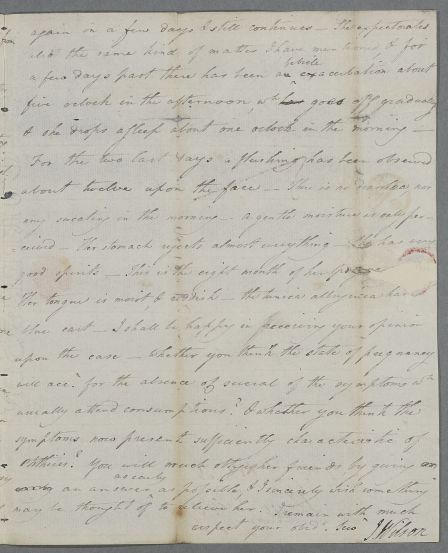 again in a few days & still continues — She expectorates
also the same kind of matter I have mentioned & for
febrile
a few days past there has been an exacerbation about
five oclock in the afternoon, wch goes off gradually
& she drops asleep about one oclock in the morning —
For the two last days a flushing has been observed
about twelve upon the face — There is no diarrhea nor
any sweating in the morning — a gentle moisture is only per-
-ceived — Her stomach rejects almost everything — She has very
good spirits — This is the eight month of her
Her tongue is moist, & reddish — the tunica albuginea has a
blue cast — I shall be happy in receiving your opinion
upon the case — Whether you think the state of pregnancy
will acct. for the absence of several of the symptoms wch
usually attend consumptions? & whether you think the
symptoms now present sufficiently characteristic of
Phthisis? You will much oblige her friends by giving
as early
an answer as possible, & I sincerely wish something
may be thought of to relieve her. I remain with much
respect your obedt. Servt.
J Wilson